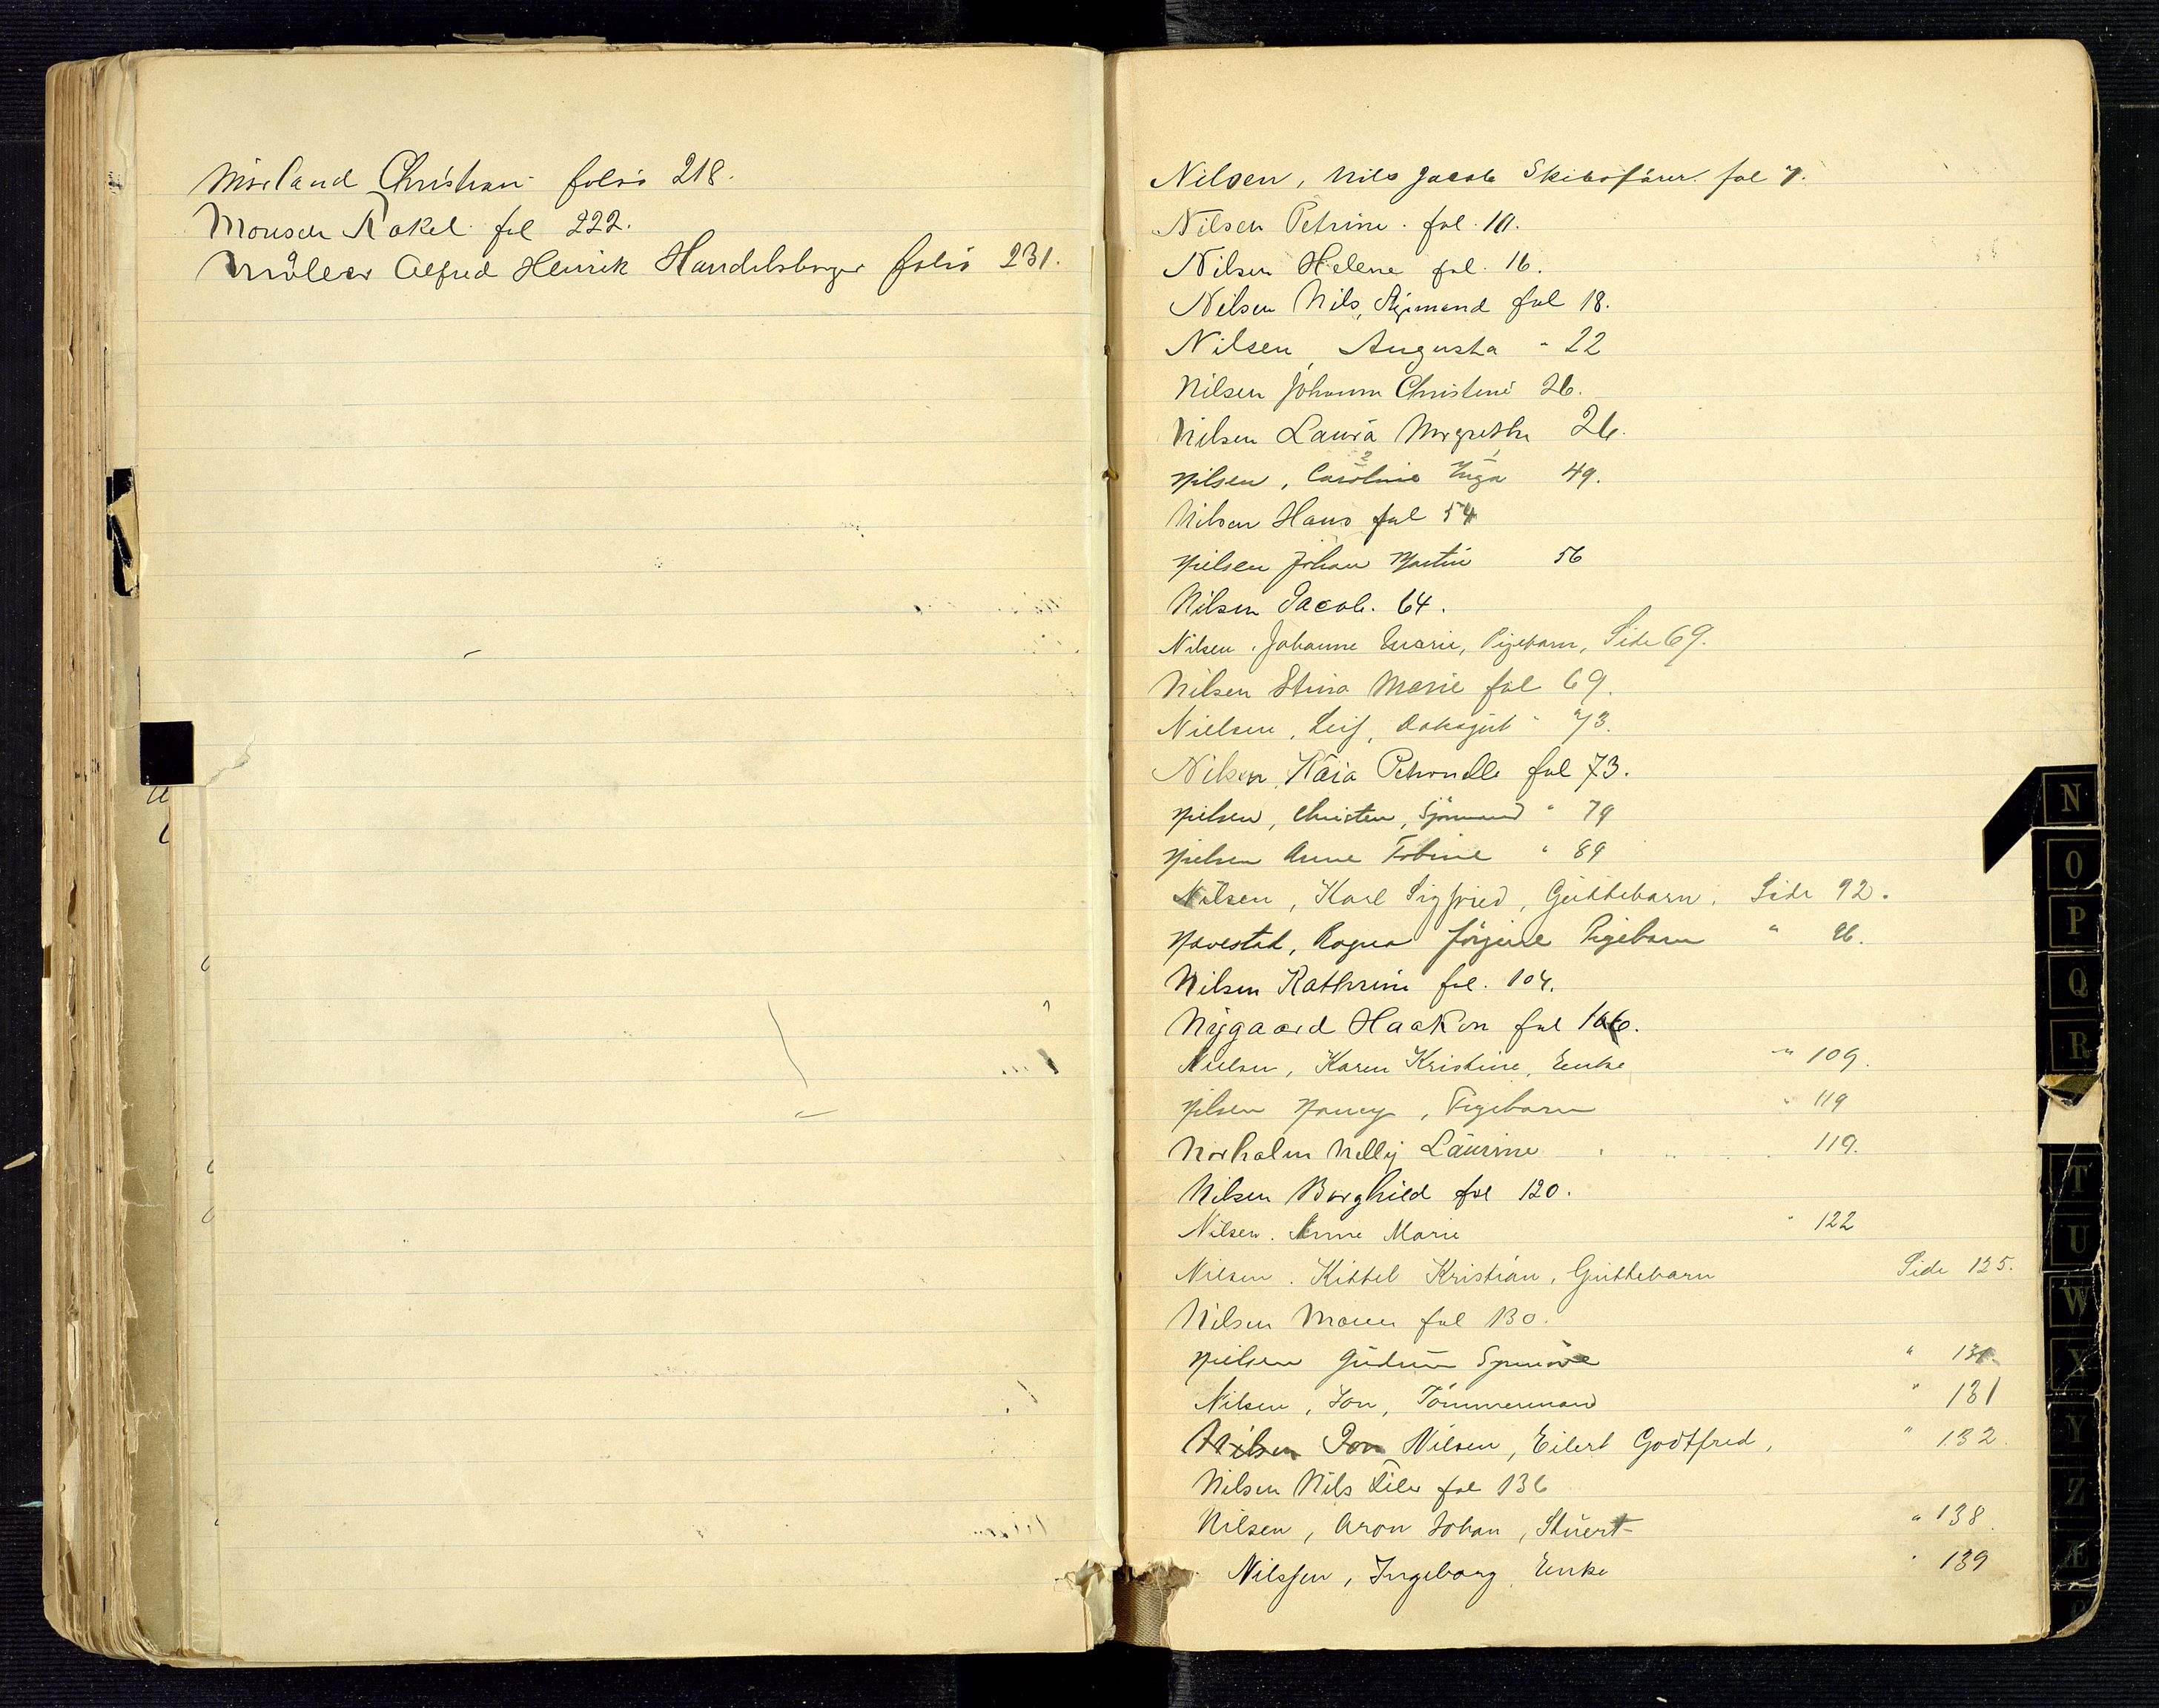 Mörland Christian folio 218.
Monsen Rakel fol 222.
Möller Alfred Henrik Handelsborger folio 231.
Nilsen, Nils Jacob Skibsfärer fol 7.
Nilsen Petrine. fol. 10.
Nilsen Helene fol. 16.
Nilsen Nils, Sigmund fol 18.
Nilsen, Augusta " 22
Nilsen Johanne Christine 26.
Nilsen Laura Margrethe 26.
Nilsen, Caroline Inga 49.
Nilsen Hans fol 54
Nielsen Johan Martin 56
Nilsen Jacob. 64.
Nilsen. Johanne Marie, Pigebarn, Side 69.
Nilsen Stina Marie fol 69.
Nielsen, Leif, " 73.
Nilsen, Kaia Petronelle fol 73.
Nielsen, Christen, Sjömand " 79
Nielsen Anne Tobine " 89
Nilsen, Karl Sigfried, Guttebarn, Side 92.
Navestad, Ragna Jörgine Pigebarn " 96.
Nilsen Kathrine fol. 104.
Nygaard Haakon fol 106.
Nielsen, Karen Kristine, Enke " 109.
Nilsen Nancy, Pigebarn " 119
Norholm Nelly Laurine " 119.
Nilsen Borghild fol 120.
Nilsen. Anne Marie " 122
Nilsen. Kittel Kristian, Guttebarn Side 125.
Nilsen Maren fol 130.
Nielsen Gudrun Synnöve " 131
Nilsen, Jon, Tömmermand " 131
Nilsen Jon Nilsen, Eilert Godtfred, " 132.
Nilsen Nils fol 136
Nilsen, Aron Johan, Stuert " 138.
Nilssen, Ingeborg Enke " 139
N
O
P
Q
R
T
U
W
X
Y
Z
Æ